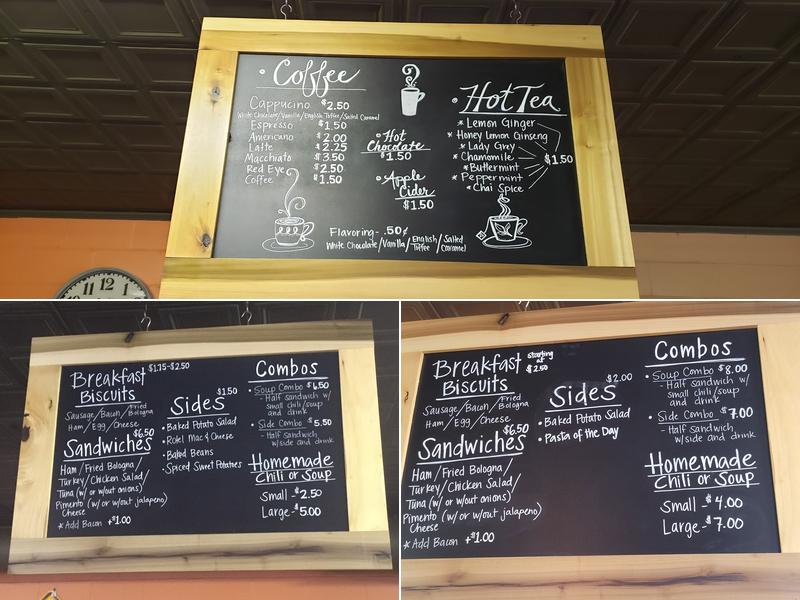 • Coffee
Cappucino $2.50
White Chocolate/Vanilla/English Toffee/Salted Caramel
Espresso $1.50
Americano $2.00
Latte $2.25
Macchiato $3.50
Red Eye $2.50
Coffee $1.50
• Hot
Chocolate
$1.50
• Apple
Cider
$1.50
Flavoring - .50¢
White Chocolate/Vanilla/English Toffee/Salted Caramel
• Hot Tea
* Lemon Ginger
* Honey Lemon Ginseng
* Lady Grey
* Chamomile
* Buttermint
* Peppermint
* Chai Spice
$1.50
11 12 1
10 2
Breakfast $1.75-$2.50
Biscuits
Sausage/Bacon/Fried Bologna
Ham/Egg/Cheese
$6.50
Sandwiches
Ham/Fried Bologna/
Turkey/Chicken Salad/
Tuna (w/ or w/out onions)
Pimento (w/ or w/out jalapeno)
Cheese
* Add Bacon +$1.00
$1.50
Sides
• Baked Potato Salad
• Rotel Mac & Cheese
• Baked Beans
• Spiced Sweet Potatoes
Combos
• Soup Combo $6.50
- Half Sandwich w/
small chili/soup
and drink
• Side Combo $5.50
- Half Sandwich
w/side and drink
Homemade
Chili or Soup
Small - $2.50
Large - $5.00
Breakfast starting at $2.50
Biscuits
Sausage/Bacon/Fried Bologna
Ham/Egg/Cheese
$6.50
Sandwiches
Ham/Fried Bologna/
Turkey/Chicken Salad/
Tuna (w/ or w/out onions)
Pimento (w/ or w/out jalapeno)
Cheese
* Add Bacon +$1.00
$2.00
Sides
• Baked Potato Salad
• Pasta of the Day
Combos
• Soup Combo $8.00
- Half sandwich w/
small chili/soup
and drink
• Side Combo $7.00
- Half Sandwich
w/side and drink
Homemade
Chili or Soup
Small - $4.00
Large - $7.00